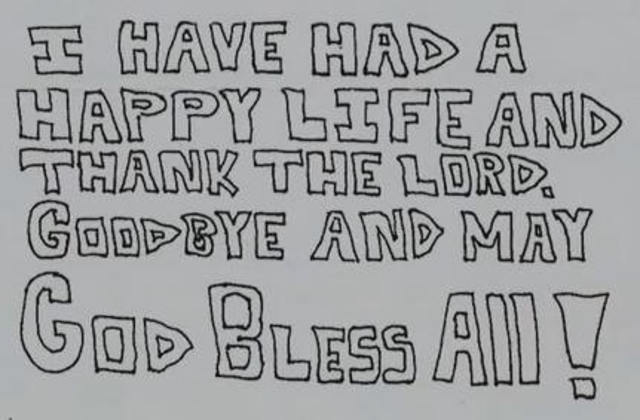 I HAVE HAD A
HAPPY LIFE AND
THANK THE LORD.
GOODBYE AND MAY
GOD BLESS All!